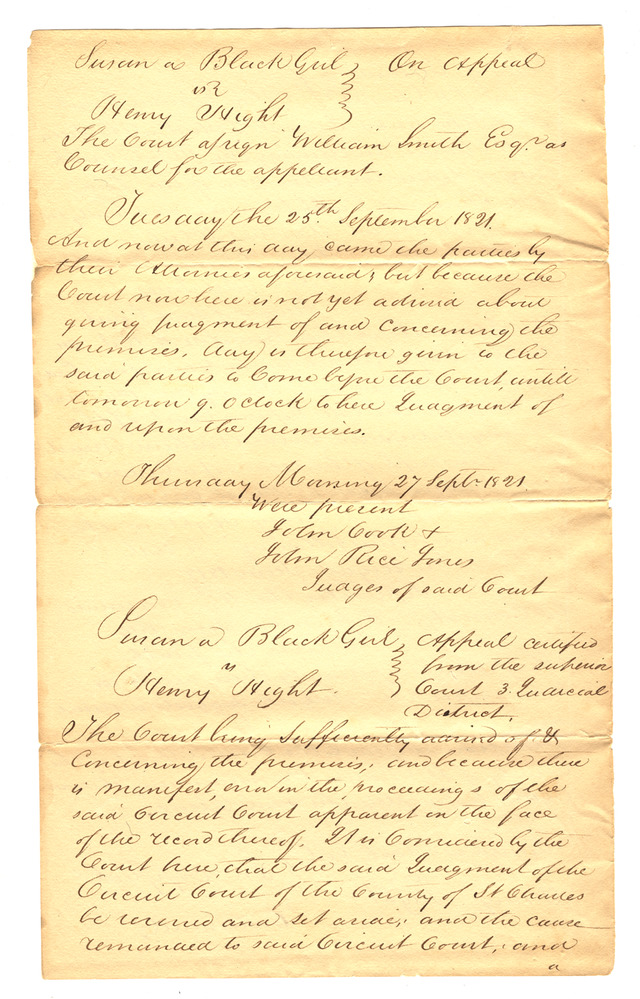 Susan a Black Girl } On Appeal
vs
Henry Hight
The Court assign William Smith Esqr as
Counsel for the appellant.
Tuesday the 25th September 1821.
And now at this day came the parties by
their Attornies aforesaid; but because the
Court now here is not yet advised about
giving Judgment of and Concerning the
premises, day is therefore given to the
said parties to Come before the Court, untill
tomorrow 9. O clock to here Judgment of
and upon the premises.
Thursday Morning 27 Septr 1821
Were present
John Cook &
John Rice Jones
Judges of said Court
Susan a Black Girl } Appeal certified
vs from the superior
Henry Hight. Court 3. Judicial
District.
The Court being Sufficiently advised of &
Concerning the premises, and because there
is manifest, error in the, proceedings of the
said Circuit Court apparent on the face
of the record thereof. It is Considered by the
Court here, that the said Judgment of the
Circuit Court of the County of St Charles
be reversed and set aside; and the cause
remanded to said Circuit Court; and
a